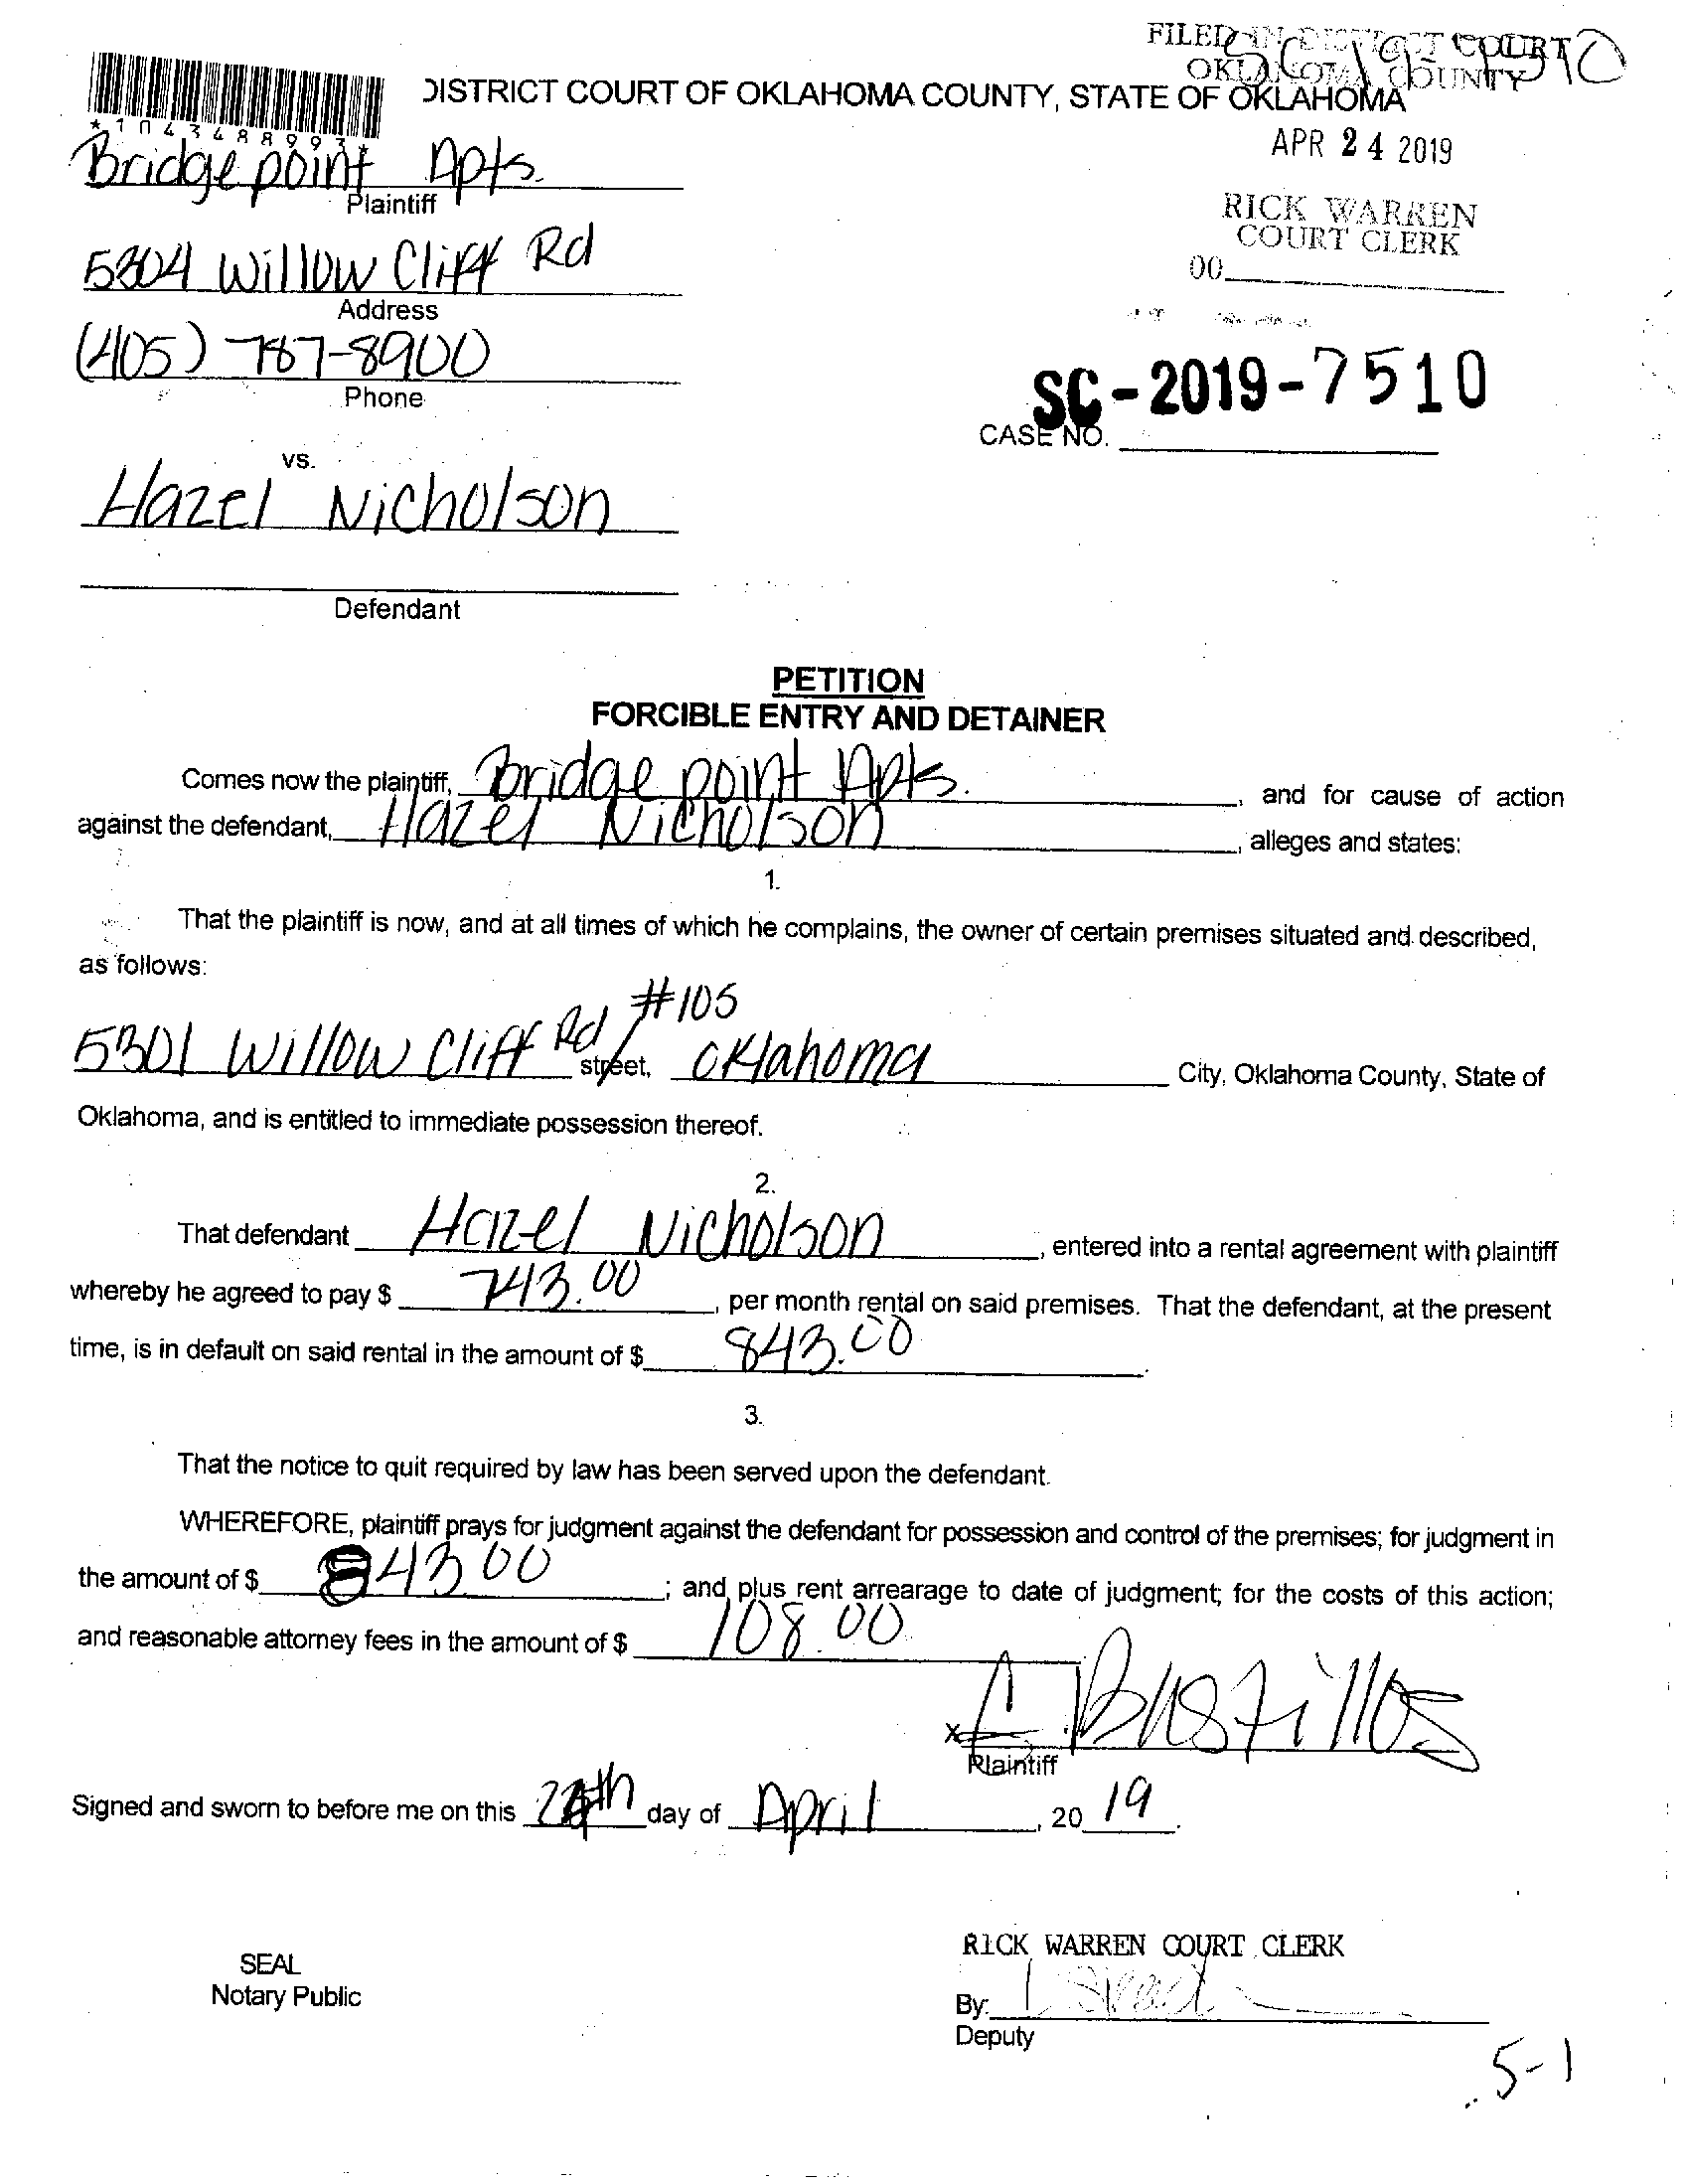 FILED IN DISTRICT COURT
OKLAHOMA COUNTY
DISTRICT COURT OF OKLAHOMA COUNTY, STATE OF OKLAHOMA
*1043488993*
APR 24 2019
Bridgepoint Apts.
Plaintiff
RICK WARREN
COURT CLERK
5304 Willow Cliff Rd
00
Address
(405) 787-8900
Phone
SC-2019-7510
CASE NO.
vs.
Hazel Nicholson
Defendant
PETITION
FORCIBLE ENTRY AND DETAINER
Comes now the plaintiff, Bridgepoint Apts., and for cause of action
against the defendant, Hazel Nicholson, alleges and states:
1.
That the plaintiff is now, and at all times of which he complains, the owner of certain premises situated and described,
as follows:
5301 Willow Cliff Rd #105 street, Oklahoma City, Oklahoma County, State of
Oklahoma, and is entitled to immediate possession thereof.
2.
That defendant Hazel Nicholson, entered into a rental agreement with plaintiff
whereby he agreed to pay $ 743.00, per month rental on said premises. That the defendant, at the present
time, is in default on said rental in the amount of $ 843.00.
3.
That the notice to quit required by law has been served upon the defendant.
WHEREFORE, plaintiff prays for judgment against the defendant for possession and control of the premises; for judgment in
the amount of $ 843.00; and, plus rent arrearage to date of judgment; for the costs of this action;
and reasonable attorney fees in the amount of $ 108.00
x C Bustillos
Plaintiff
Signed and sworn to before me on this 24th day of April, 20 19.
RICK WARREN COURT CLERK
SEAL
Notary Public
By:
Deputy
5-1